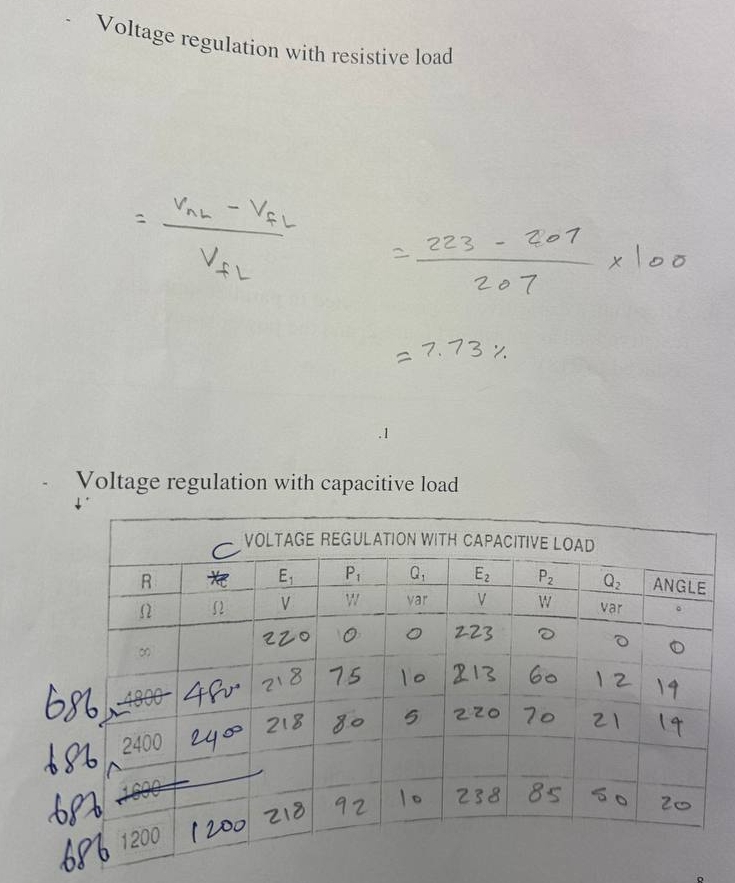 - Voltage regulation with resistive load
= VnL - VfL / VfL
= 223 - 207 / 207 × 100
= 7.73 %
.1
- Voltage regulation with capacitive load
VOLTAGE REGULATION WITH CAPACITIVE LOAD
R C E₁ P₁ Q₁ E₂ P₂ Q₂ ANGLE
Ω Ω V W var V W var °
∞ 220 0 0 223 0 0 0
686 4800 4800 218 75 10 213 60 12 19
686 2400 2400 218 80 5 220 70 21 19
686 1600
686 1200 1200 218 92 10 238 85 50 20